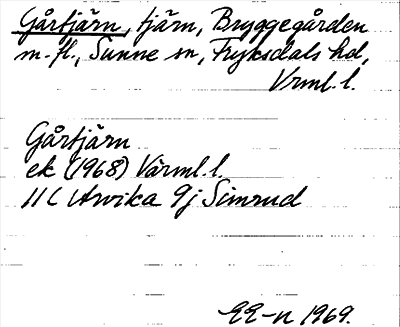 Gårtjärn, tjärn, Bryggegården
m.fl., Sunne sn, Fryksdals hd,
Vrml. l.
Gårtjärn
ek (1968) Värml. l.
11C Arvika 9j Simrud
EE-n 1969.